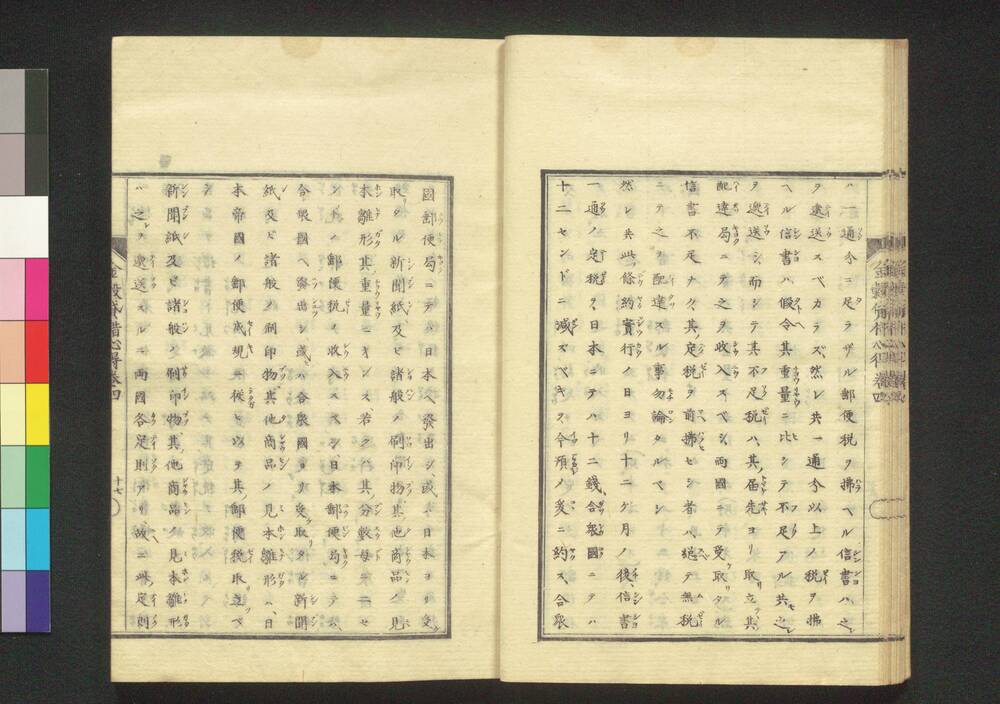 ハ一通分ニ足ラザル郵便税ヲ拂ヘル信書ハ之
ヲ遞送スベカラズ、然レ共一通分以上ノ税ヲ拂
ヘル信書ハ假令其重量ニ比シテ不足アル共之
ヲ遞送シ而シテ其不足税ハ、其届先ヨリ取立、其
配達局ニテ之ヲ收入スベシ両國ニテ受取タル
信書不足ナク、其定税ヲ前拂セシ者ハ總テ無税
ニテ之ヲ配達スル事勿論タルベシ
然レ共此條約實行ノ日ヨリ十二ケ月ノ後、信書
一通ノ定税ヲ、日本ニテハ十二錢、合衆國ニテハ
十二センドニ減スベキヲ今預ノ爰ニ約ス、合衆
金穀備借心得 巻四
國郵便局ニテハ日本ヘ發出シ或ハ日本ヨリ受
取タル新聞紙及ビ諸般ノ刷印物其他商品ノ見
本雛形其重量二オンス若クハ其分數毎ニ二セ
ンドノ郵便税ヲ收入スベシ、日本郵便局ニテハ
合衆國ヘ發出シ或ハ合衆國ヨリ受取タル新聞
紙及ビ諸般ノ刷印物其他商品ノ見本雛形ハ、日
本帝國ノ郵便成規ニ從ヒ以テ其郵便税取立ベ
シ
新聞紙及ビ諸般ノ刷印物其他商品ノ見本雛形
ハ之ヲ遞送スルニ両國各定則アリ故ニ此定則
十七